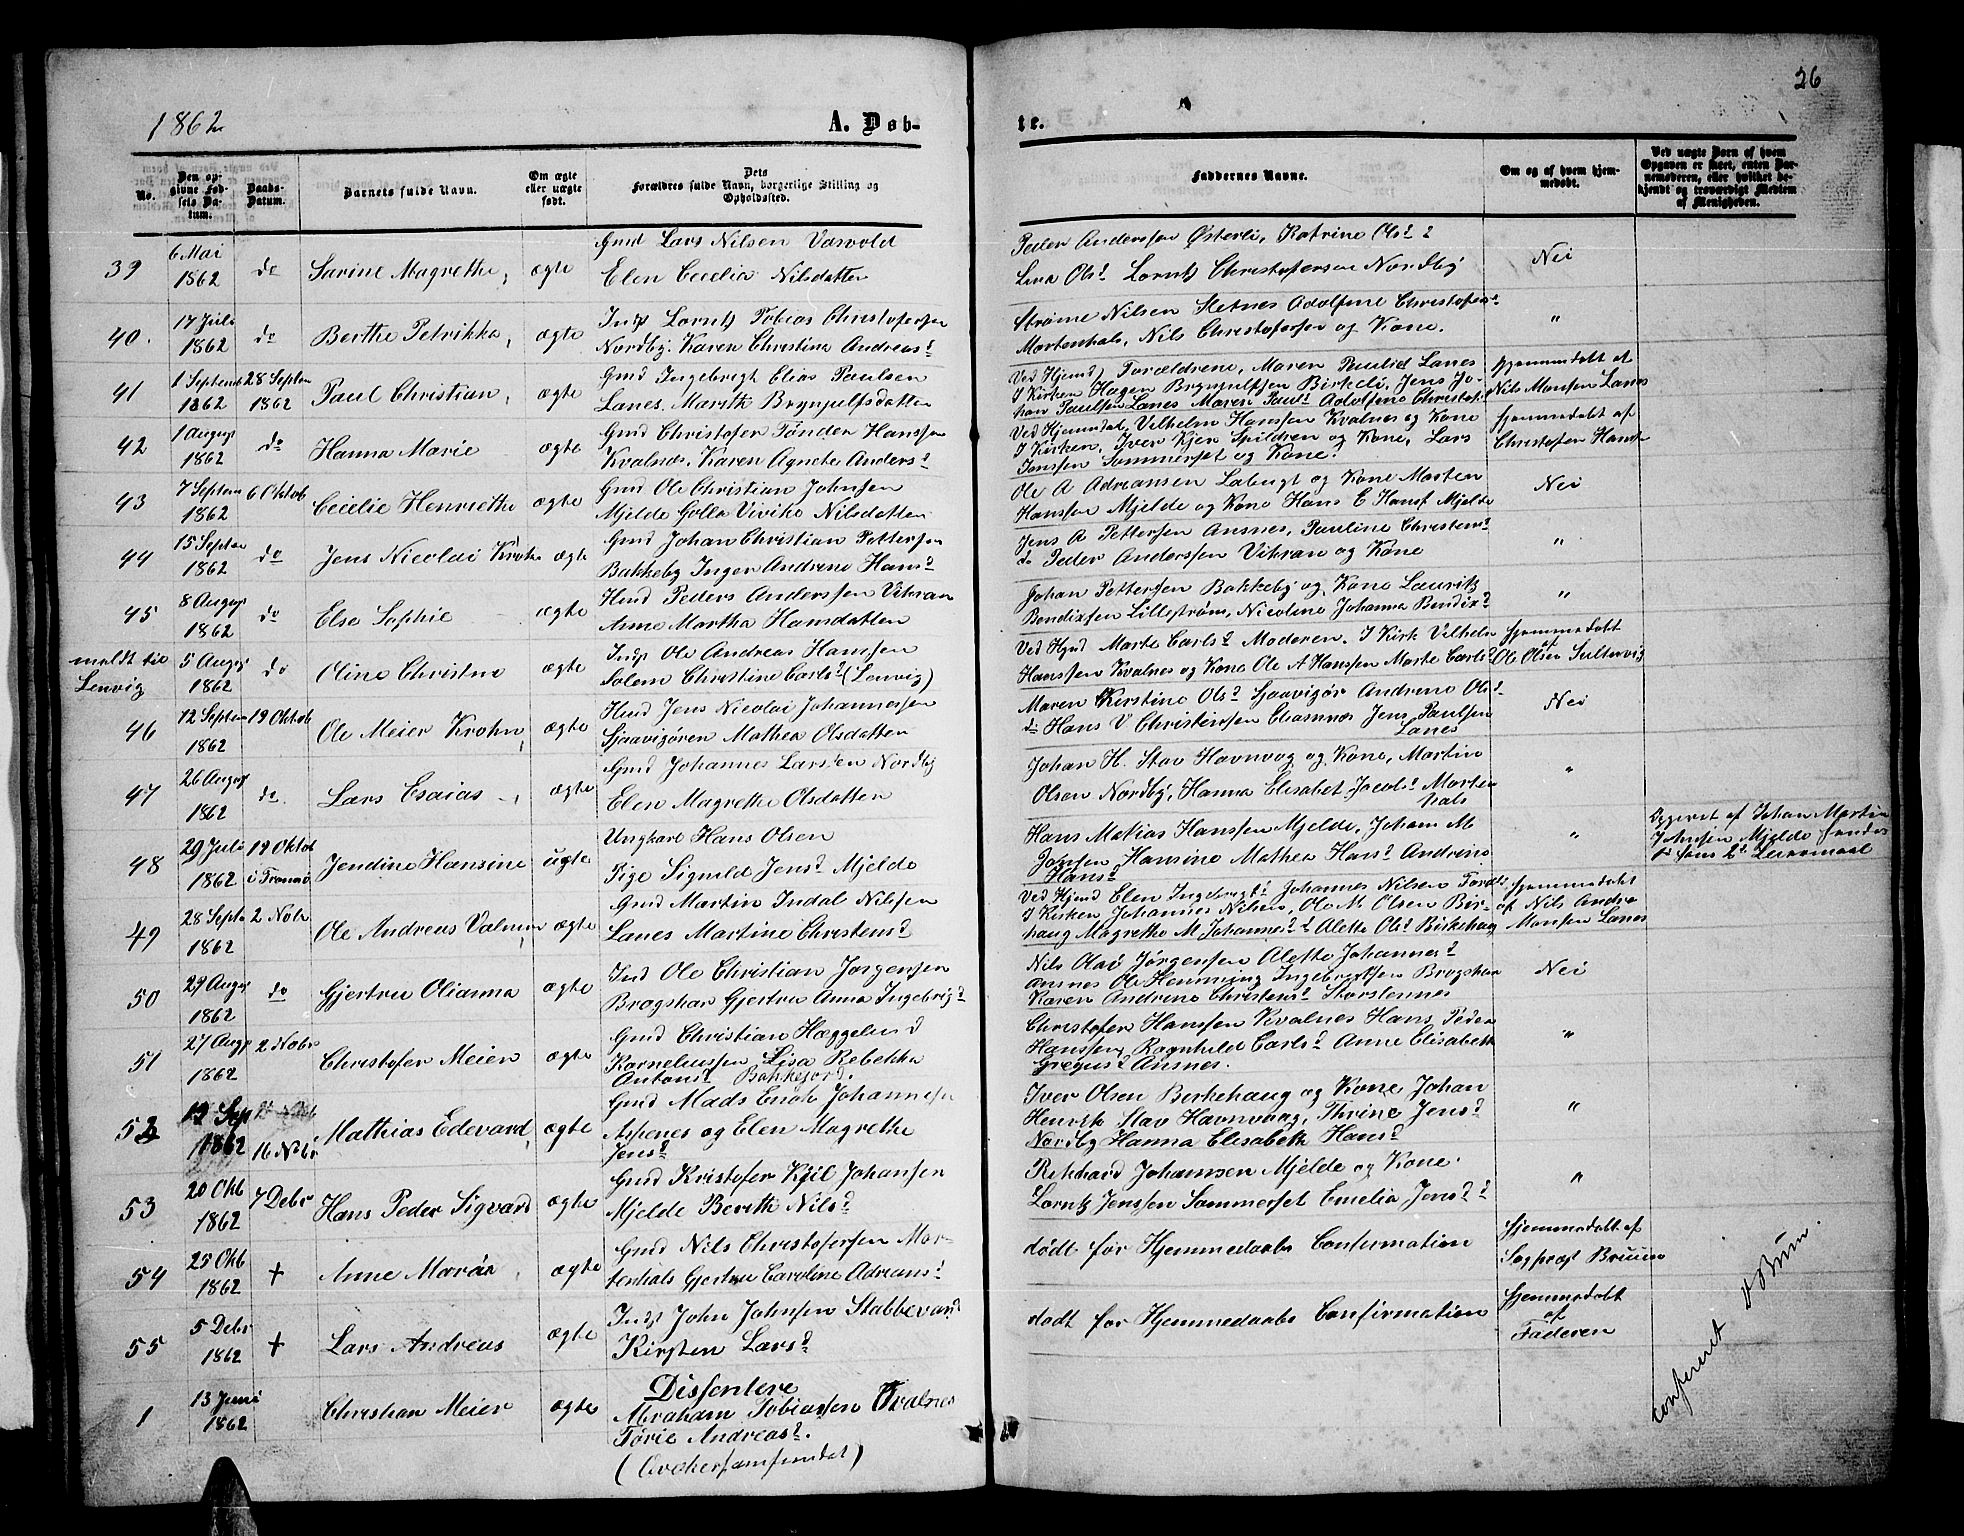 26
1862
A. Døb-
te.
No.
Den op-
givne Fød-
sels Da-
tum.
Daabs-
Datum.
Barnets fulde Navn.
Om ægte
eller uægte
født.
Dets
Forældres fulde Navn, borgerlige Stilling og
Opholdssted.
Faddernes Navne.
Om og af hvem hjem-
medøbt.
Ved uægte Børn af hvem
Opgaven er skeet, enten Bar-
nemoderen, eller hvilket be-
kjendt og troværdigt Medlem
af Menigheden.
39
6 Mai
1862
do
Sarine Magrethe,
ægte
Gmd Lars Nilsen Vasvold
Elen Cecelia Nilsdatter
Peder Anderssen Østerli, Katrine Ols d
Lina Ols d Lorntz Christofersen Nordby
Nei
40.
17 Juli
1862
do
Berthe Petrikka,
ægte
Indst Lorntz Tobias Christofersen
Nordby. Karen Christina Andreas d
Strøme Nilsen Sletnes Adolfine Christofers
Mortenhals, Nils Christofersen og Kone.
"
41
1 Septemb
1862
28 Septem
1862
Paul Christian,
ægte
Gmd Ingebrigt Elias Paulsen
Lanes. Marith Brynjulfsdatter
Ved Hjemd) Forældrene, Maren Paulsd Lanes
I Kirken Hagen Brynjulfsen Birkeli, Jens Jo-
han Paulsen Lanes Maren Pauls d Adolfine Christof
hjemmedøbt af
Nils Monsen Lanes
42
1 August
1862
do
Hanna Marie
ægte
Gmd Christofer Tønder Hanssen
Kvalnes, Karen Agnete Anders d
Ved Hjemmdøb, Vilhelm Hanssen Kvalnes og Kone
I Kirken, Iver Kjer Spildren og Kone, Lars
Jenssen Sommerset og Kone
hjemmedøbt af
Christofer Hanss
43
7 Septem
1862
6 Oktob
Cecilie Henriethe
ægte
Gmd Ole Christian Johnsen
Mjelde Golla Viviko Nilsdatter
Ole A Adreansen Labugt og Kone Morten
Hanssen Mjelde og Kone Hans E Hanss Mjelde
Nei
44
15 Septem
1862
do
Jens Nicolai Krohn
ægte
Gmd Johan Christian Pettersen
Bakkeby Inger Andrene Hans d
Jens A Pettersen Ansnes, Pauline Christens d
do Peder Anderssen Vikran og Kone
"
45
8 August
1862
do
Else Sophie
ægte
Hmd Peders Anderssen Vikran
Anne Martha Hansdatter
Johan Pettersen Bakkeby og Kone Lauritz
Bendixsen Lillestrøm, Nicoline Johanna Bendix d
"
meldt til
Lenvig
5 August
1862
do
Oline Christine
ægte
Indst Ole Andreas Hanssen
Solem Christine Carls d (Lenvig)
Ved Hjmd Marte Carls d Moderen. I Kirk Vilhelm
Hanssen Kvalnes og Kone Ole A Hanssen Marte Carls d
hjemmedøbt
af
Ole Olsen Sultenvig
46
12 Septem
1862
19 Oktob
Ole Meier Krohn,
ægte
Hmd Jens Nicolai Johannessen
Sjaavigøren Mathea Olsdatter
Maren Kirstine Ols d Sjaavigør Andrene Ols d
do Hans V Christenssen Eliasnæs Jens Paulsen
Lanes
Nei
47
26 August
1862
do.
Lars Esaias
ægte
Gmd Johannes Larsen Nordby
Elen Magrethe Olsdatter
Johan H. Stav Havnvog og Kone, Martin
Olsen Nordby, Hanna Elisabet Jacobs d Morten
hals
"
48
29 Juli
1862
19 Oktob
i Tromsø
Jendine Hansine
ugte
Ungkarl Hans Olsen
Pige Signild Jens d Mjelde
Hans Mathias Hanssen Mjelde, Johan M
Jonsen Hansine Mathea Hans d Andrine
Hans d
"
Opgivet af Johan Martin
Johnsen Mjelde hendes
1 hans 2 Leiermaal
49
28 Sept
1862
2 Nobr
Ole Andreas Valnum
ægte
Gmd Martin Indal Nilssen
Lanes Martine Christens d
Ved Hjmd Elen Ingebrigt d Johannes Nilsen
I Kirken Johannes Nilsen, Ole M. Olsen Bir-
haug Magrethe M Johannes d Alette Ols d Birkehaug
hjemmedøbt
af Nils Andre
Monsen Lanes
50
29 August
1862
do
Gjertru Olianna
ægte
Ind Ole Christian Jørgensen
Brogshar Gjertru Anna Ingebrig d
Nils Olai Jørgensen Alette Johannes d
Ansnes Ole Henning Ingebrigtsen Brogshar
Karen Andrene Christens d Storstennes
Nei
51
27 Aug
1862
2 Nobr
Christofer Meier
ægte
Gmd Christian Hæggelund
Korneliussen Lisa Rebekka
Antons d Bakkejord.
Christofer Hanssen Kvalnes Hans Peder
Hanssen, Ragnhild Carls d Anne Elisabeth
Gregus d Ansnes.
"
52
19 Sep
1862
16 Nobr
Mathias Edevard,
ægte
Gmd Mads Enok Johannesen
Aspenes og Elen Magrethe
Jens d
Iver Olsen Berkehaug og Kone Johan
Henrik Stav Havnvaag, Thrine Jens d
Nordby Hanna Elisabeth Hans d
"
53
20 Okb
1862
7 Debr
Hans Peder Sigvard
ægte
Gmd Kristofer Kjil Johansen
Mjelde Berith Nils d
Rikhard Johansen Mjelde og Kone.
Lorntz Jenssen Sommerset Emelia Jens d
"
54
25 Okb
1862
+
Anne Maria,
ægte
Gmd Nils Christofersen Mor-
tenhals Gjertru Caroline Adrians d
dødt før Hjemmedaabs Confirmation
hjemmedøbt af
Sogprest Bruun
55
5 Debr
1862
+
Lars Andreas
ægte
Indst John Johnsen Stabbevand
Kirsten Lars d
dødt før Hjemmedaabs Confirmation
hjemmedøbt
af
Faderen
1
13 Juni
1862
Christian Meier
ægte
Dissentere
Abraham Tobiassen Kvalnes
Tørie Andreas d.
(Qvækersamfundet)
conferent
Bruun.